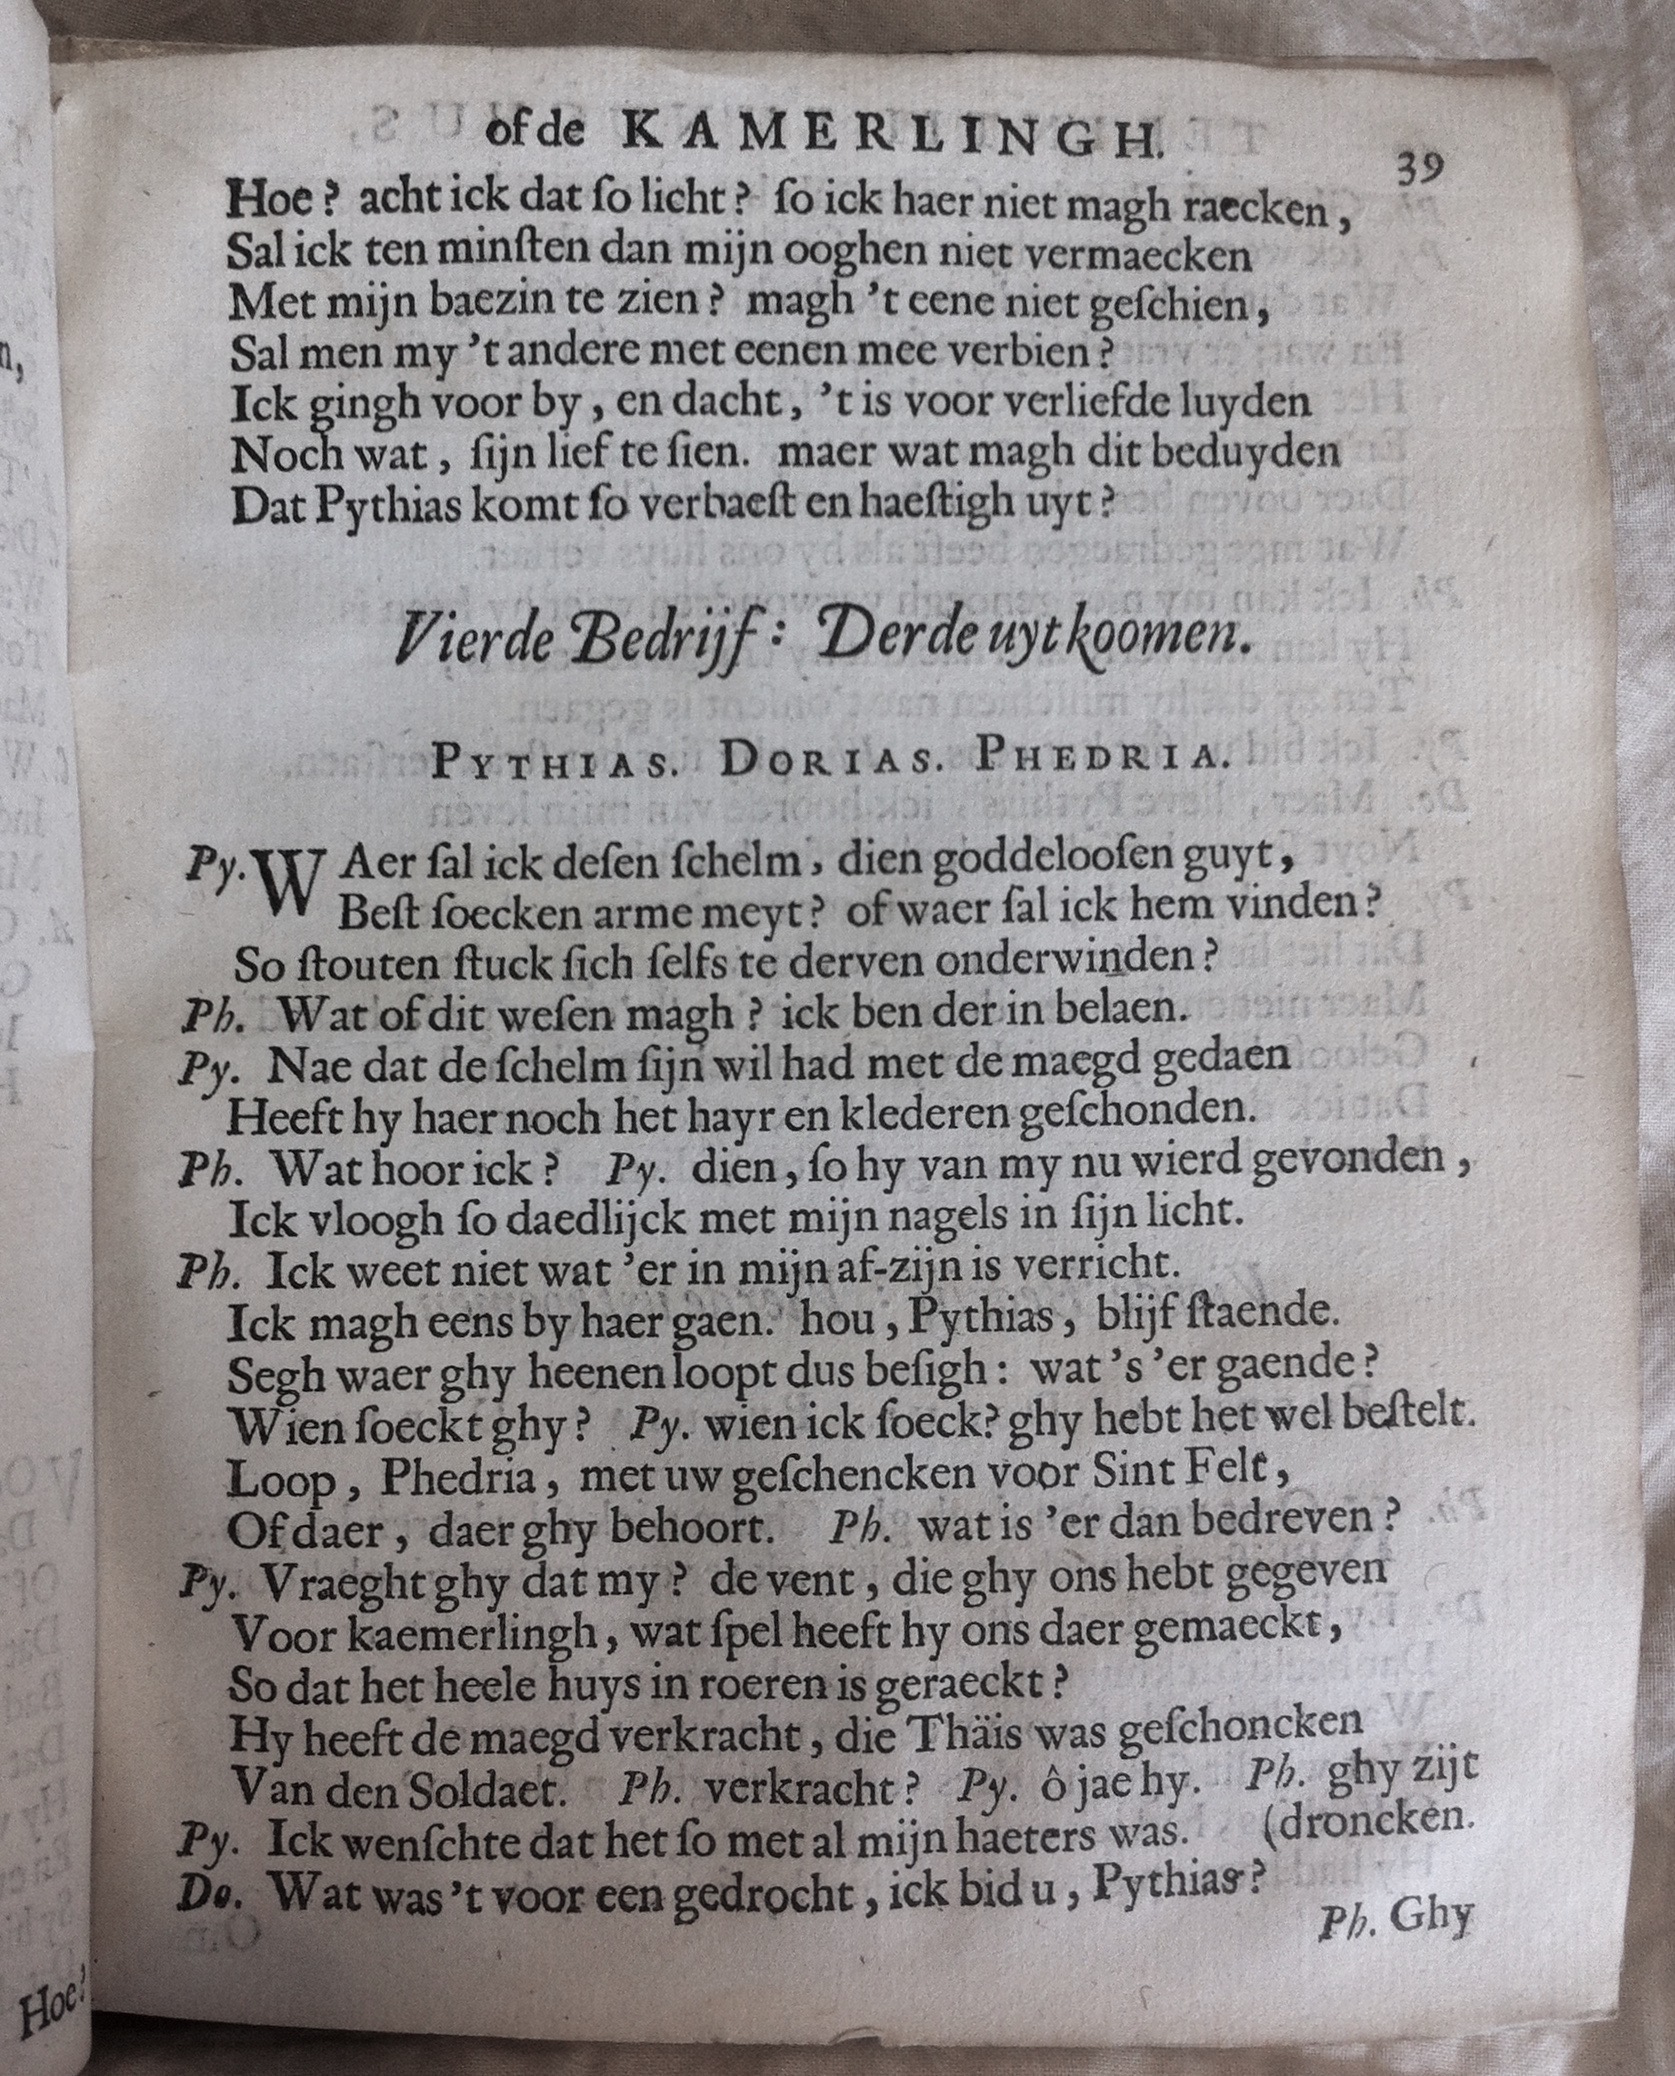 of de KAMERLINGH. 39
Hoe? acht ick dat ſo licht? ſo ick haer niet magh raecken,
Sal ick ten minſten dan mijn ooghen niet vermaecken
Met mijn baezin te zien? magh 't eene niet geſchien,
Sal men my 't andere met eenen mee verbien?
Ick gingh voor by, en dacht, 't is voor verliefde luyden
Noch wat, ſijn lief te ſien. maer wat magh dit beduyden
Dat Pythias komt ſo verbaeſt en haeſtigh uyt?
Vierde Bedrijf: Derde uytkoomen.
PYTHIAS. DORIAS. PHEDRIA.
Py. WAer ſal ick deſen ſchelm, dien goddelooſen guyt,
Beſt ſoecken arme meyt? of waer ſal ick hem vinden?
So ſtouten ſtuck ſich ſelfs te derven onderwinden?
Ph. Wat of dit weſen magh? ick ben der in belaen.
Py. Nae dat de ſchelm ſijn wil had met de maegd gedaen
Heeft hy haer noch het hayr en klederen geſchonden.
Ph. Wat hoor ick? Py. dien, ſo hy van my nu wierd gevonden,
Ick vloogh ſo daedlijck met mijn nagels in ſijn licht.
Ph. Ick weet niet wat 'er in mijn af-zijn is verricht.
Ick magh eens by haer gaen. hou, Pythias, blijf ſtaende.
Segh waer ghy heenen loopt dus beſigh: wat 's 'er gaende?
Wien ſoeckt ghy? Py. wien ick ſoeck? ghy hebt het wel beſtelt.
Loop, Phedria, met uw geſchencken voor Sint Felt,
Of daer, daer ghy behoort. Ph. wat is 'er dan bedreven?
Py. Vraeght ghy dat my? de vent, die ghy ons hebt gegeven
Voor kaemerlingh, wat ſpel heeft hy ons daer gemaeckt,
So dat het heele huys in roeren is geraeckt?
Hy heeft de maegd verkracht, die Thäis was geſchoncken
Van den Soldaet. Ph. verkracht? Py. ô jae hy. Ph. ghy zijt
(droncken.
Py. Ick wenſchte dat het ſo met al mijn haeters was.
Do. Wat was 't voor een gedrocht, ick bid u, Pythias?
Ph. Ghy
Hoe?